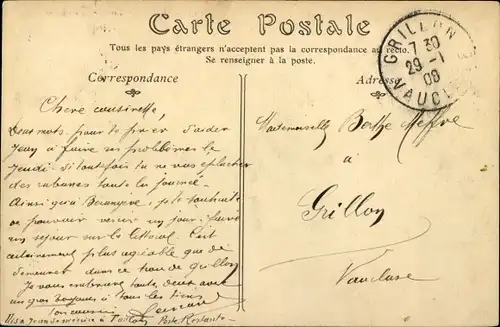 Carte Postale
Tous les pays étrangers n'acceptent pas la correspondance au recto.
Se renseigner à la poste.
Correspondance
Adresse
GRILLON
7 30
29 -1
08
VAUCLUSE
Chère cousinette,
Deux mots pour te prier d'aider
Jean à faire ses problèmes le
jeudi si toutefois tu ne vas éplucher
des rubanes toute la journée
Ainsi qu'à Bérangère, je te souhaite
de pouvoir venir un jour faire
un séjour sur le littoral. C'est
certainement plus agréable que de
demeurer dans ce trou de Grillon
Je vous embrasse toute deux avec
un gros bonjour à tous les tiens
Ton cousin
à Toulon Poste Restante
Mademoiselle Berthe Meffre
à
Grillon
Vaucluse